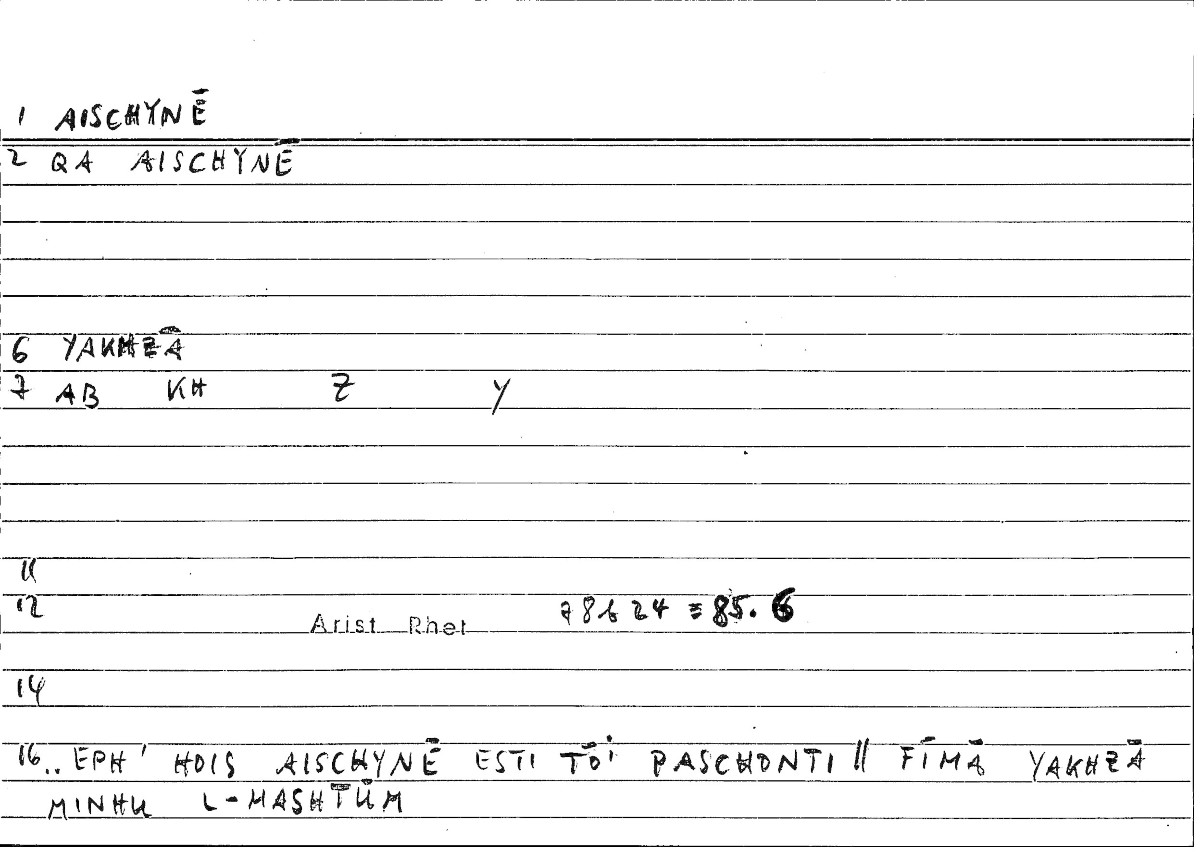 1 AISCHYNĒ
2 QA AISCHYNĒ
6 YAKHZĀ
7 AB KH Z Y
11
12 Arist Rhet 78b24 = 85.6
14
16.. EPH' HOIS AISCHYNĒ ESTI TŌI PASCHONTI || FĪMĀ YAKHZĀ
MINHU L-MASHTŪM